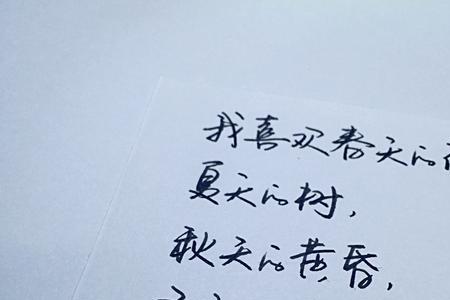 我喜欢春天的
夏天的树，
秋天的黄昏，